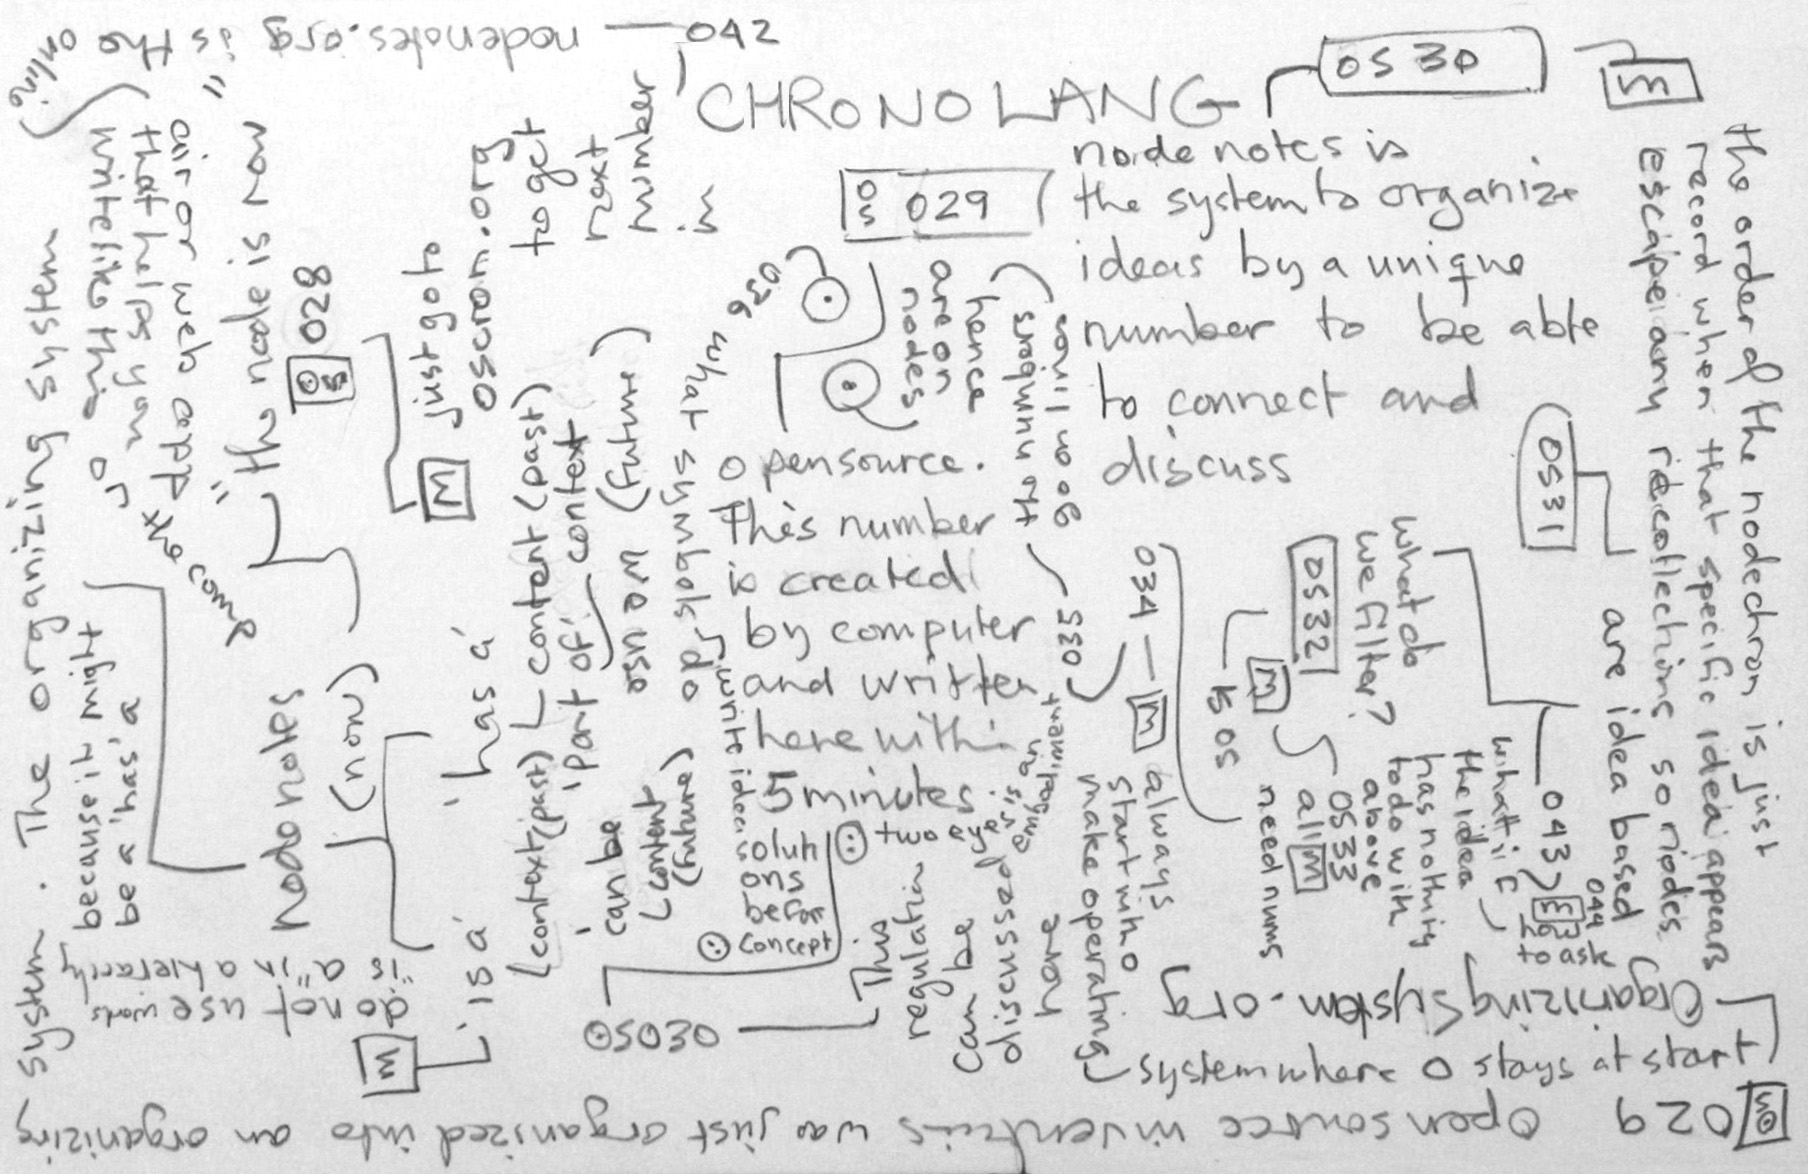 042 — nodenotes.org is the online
CHRONOLANG
0530
M
OS 029
node notes is
the system to organize
ideas by a unique
number to be able
to connect and
discuss
the order of the nodechron is just
record when that specific idea appears
escape any
so nodes
are idea based
0531
0532
what do
we filter?
M
0533
all M
need nums
has nothing
to do with
above
the idea
what if
043
M
044
to ask
034 — M
always
start with 0
make operating
system where 0 stays at start
OrganizingSystem.org
029
open source inventions was just organized into an organizing
system. The organizing system
because it might
be a 'has' a
do not use words
"is a" in a hierarchy
M
'is a'
'has a'
node notes
(now)
"the node is now"
that come
OS 028
M
just go to
oscrom.org
to get
next
number
in
content (past)
(context/past)
'part of'
context
(future)
can be
content
(future)
we use
symbols
what
026
are on
nodes
hence
the numbers
go on lines
opensource.
This number
is created
by computer
and written
here within
5 minutes
035
write ideas
soluti
ons
before
concept
two eyes
is an
embodiment
OS030
This
regulation
can be
discussed
here